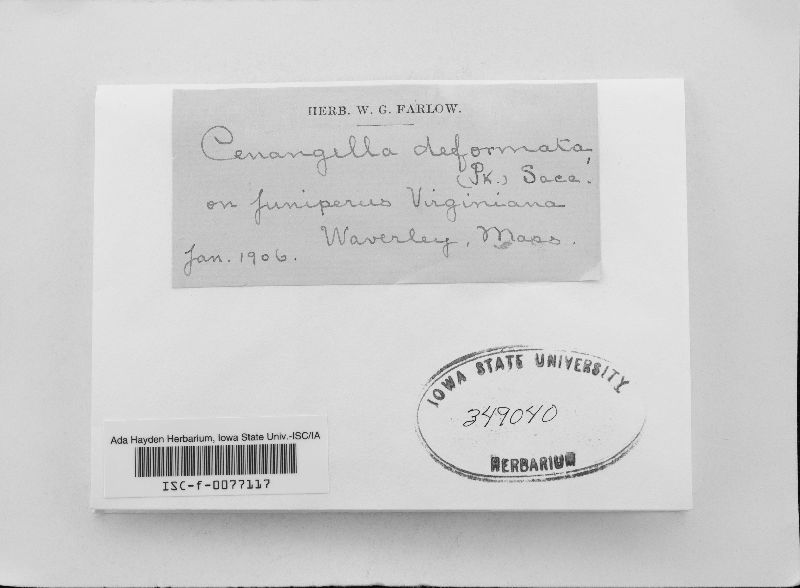 HERB. W. G. FARLOW.
Cenangella deformata,
(Pk.) Sacc.
on Juniperus Virginiana
Waverley, Mass.
Jan. 1906.
IOWA STATE UNIVERSITY
349040
HERBARIUM
Ada Hayden Herbarium, Iowa State Univ.-ISC/IA
ISC-f-0077117